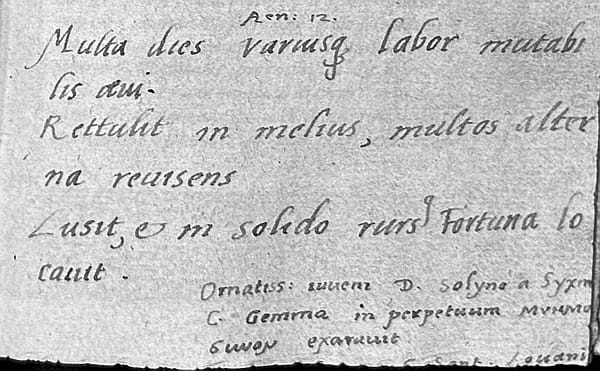 Aen: 12.
Multa dies variusq labor mutabi
lis æui.
Rettulit in melius, multos alter
na reuisens
Lusit, & in solido rurs⁹ Fortuna lo
cauit.
Ornatiss: iuueni D. Solyno a Syxm
C. Gemma in perpetuum
exarauit
Louani